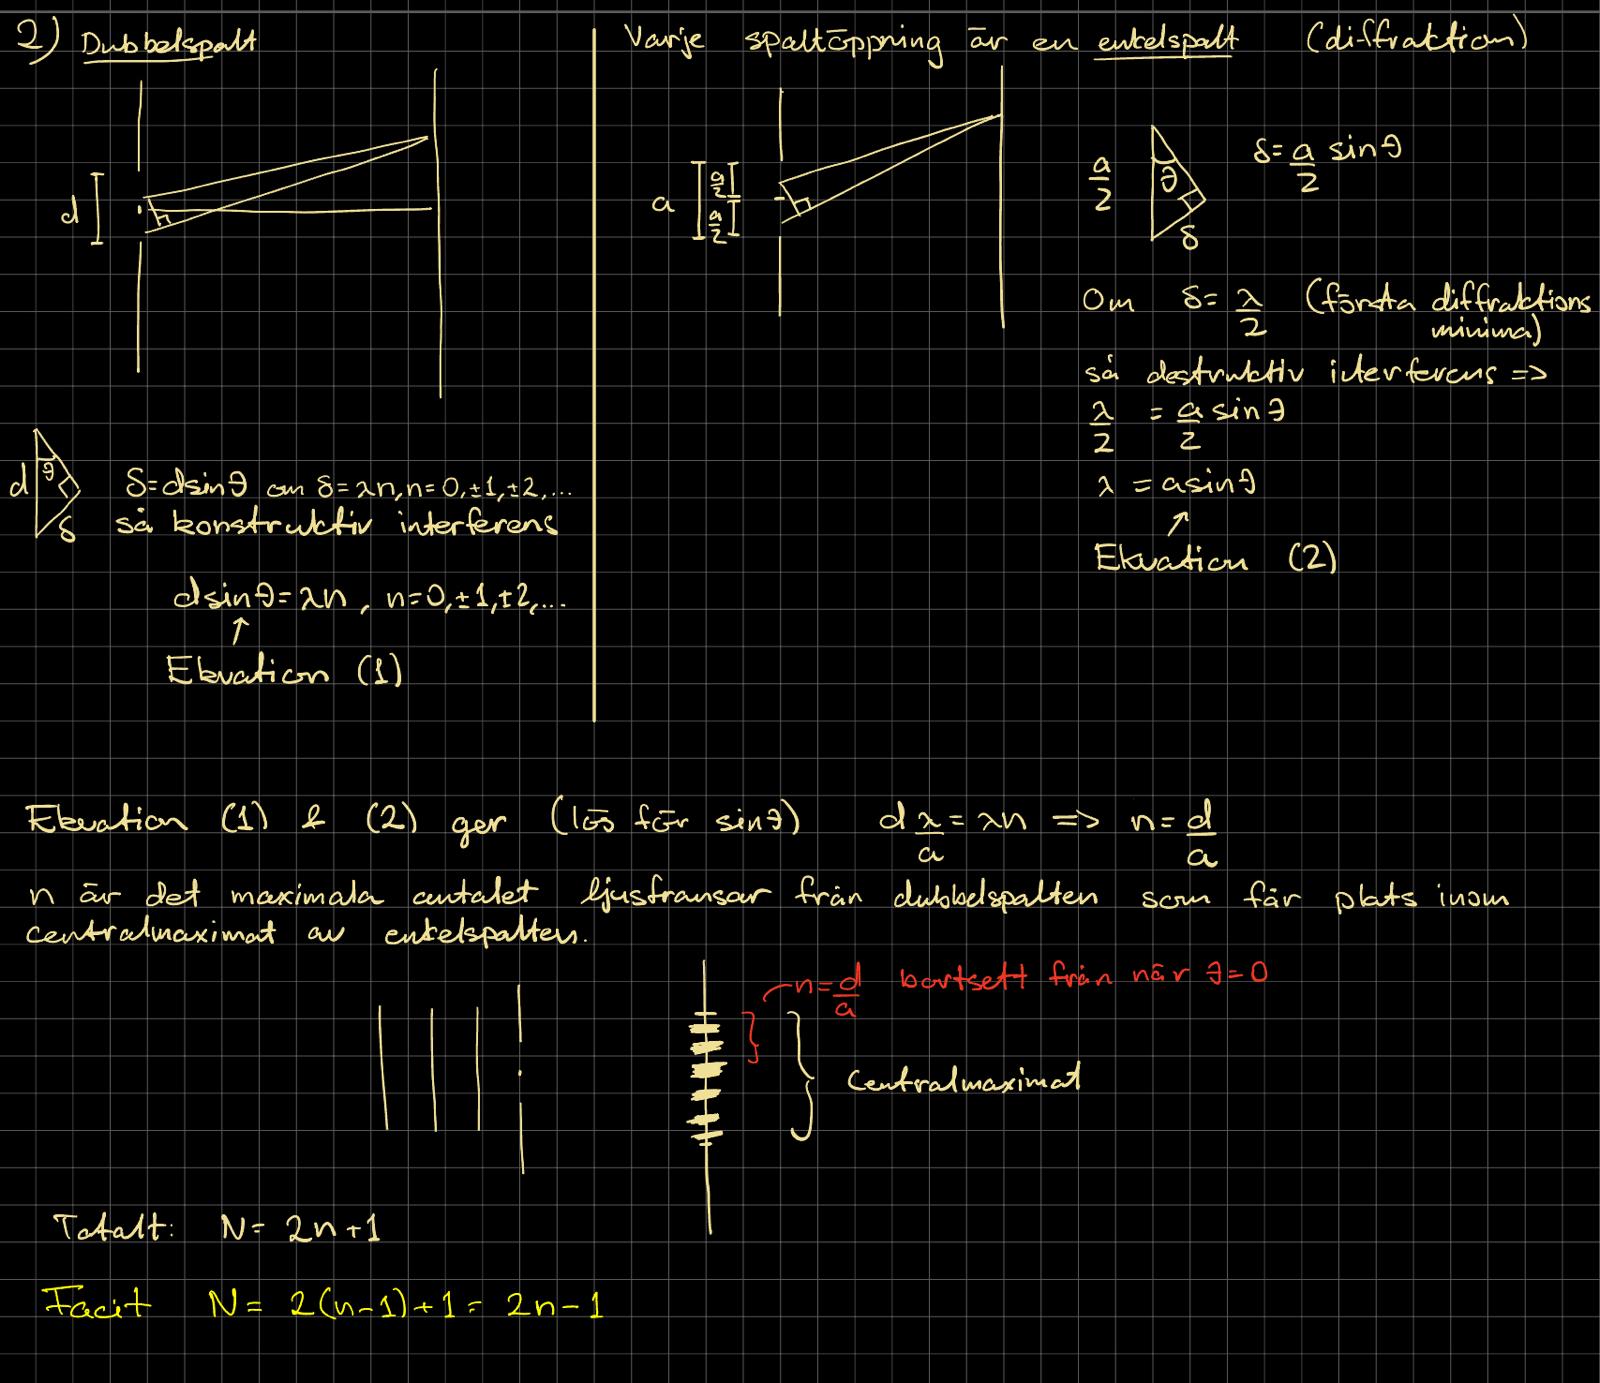 2) Dubbelspalt
d
d
θ
δ
δ=dsinθ om δ=λn, n=0,±1,±2,...
så konstruktiv interferens
dsinθ=λn, n=0,±1,±2,...
↑
Ekvation (1)
Varje spaltöppning är en enkelspalt (diffraktion)
a
a/2
a/2
a/2
θ
δ
δ=a/2 sinθ
Om δ=λ/2 (första diffraktions
minima)
så destruktiv interferens =>
λ/2 = a/2 sinθ
λ = asinθ
↗
Ekvation (2)
Ekvation (1) & (2) ger (lös för sinθ) d λ/a = λn => n=d/a
n är det maximala antalet ljusfransar från dubbelspalten som får plats inom
centralmaximat av enkelspalten.
n=d/a bortsett från när θ=0
Centralmaximat
Totalt: N= 2n+1
Facit N= 2(n-1)+1= 2n-1